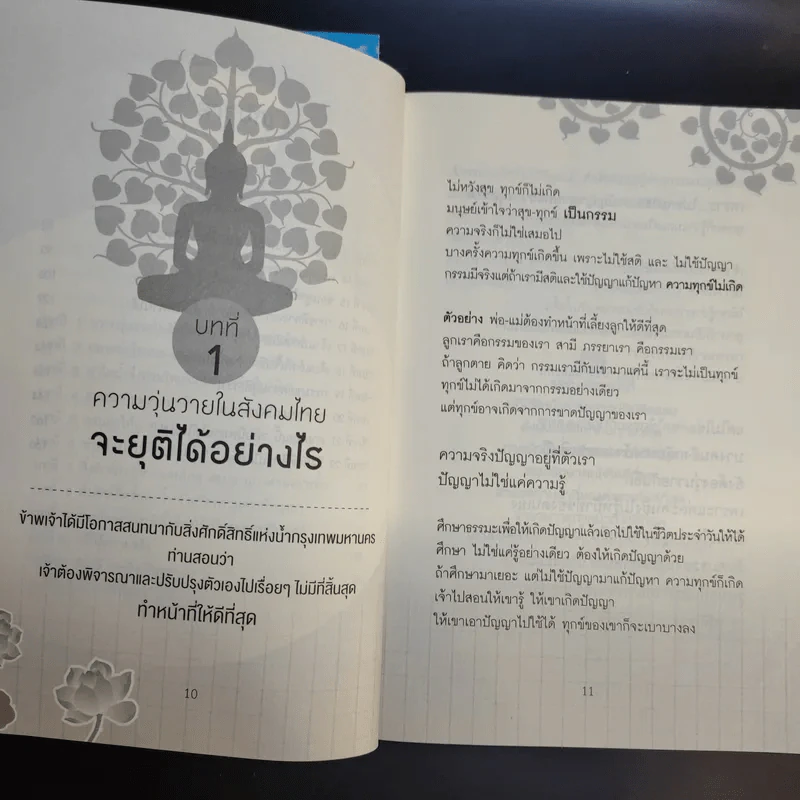 บทที่
1
ความวุ่นวายในสังคมไทย
จะยุติได้อย่างไร
ข้าพเจ้าได้มีโอกาสสนทนากับสิ่งศักดิ์สิทธิ์แห่งน้ำกรุงเทพมหานคร
ท่านสอนว่า
เจ้าต้องพิจารณาและปรับปรุงตัวเองไปเรื่อยๆ ไม่มีที่สิ้นสุด
ทำหน้าที่ให้ดีที่สุด
10
ไม่หวังสุข ทุกข์ก็ไม่เกิด
มนุษย์เข้าใจว่าสุข-ทุกข์ เป็นกรรม
ความจริงก็ไม่ใช่เสมอไป
บางครั้งความทุกข์เกิดขึ้น เพราะไม่ใช้สติ และ ไม่ใช้ปัญญา
กรรมมีจริงแต่ถ้าเรามีสติและใช้ปัญญาแก้ปัญหา ความทุกข์ไม่เกิด
ตัวอย่าง พ่อ-แม่ต้องทำหน้าที่เลี้ยงลูกให้ดีที่สุด
ลูกเราคือกรรมของเรา สามี ภรรยาเรา คือกรรมเรา
ถ้าลูกตาย คิดว่า กรรมเรามีกับเขามาแค่นี้ เราจะไม่เป็นทุกข์
ทุกข์ไม่ได้เกิดมาจากกรรมอย่างเดียว
แต่ทุกข์อาจเกิดจากการขาดปัญญาของเรา
ความจริงปัญญาอยู่ที่ตัวเรา
ปัญญาไม่ใช่แค่ความรู้
ศึกษาธรรมะเพื่อให้เกิดปัญญาแล้วเอาไปใช้ในชีวิตประจำวันให้ได้
ศึกษา ไม่ใช่แค่รู้อย่างเดียว ต้องให้เกิดปัญญาด้วย
ถ้าศึกษามาเยอะ แต่ไม่ใช้ปัญญามาแก้ปัญหา ความทุกข์ก็เกิด
เจ้าไปสอนให้เขารู้ ให้เขาเกิดปัญญา
ให้เขาเอาปัญญาไปใช้ได้ ทุกข์ของเขาก็จะเบาบางลง
11